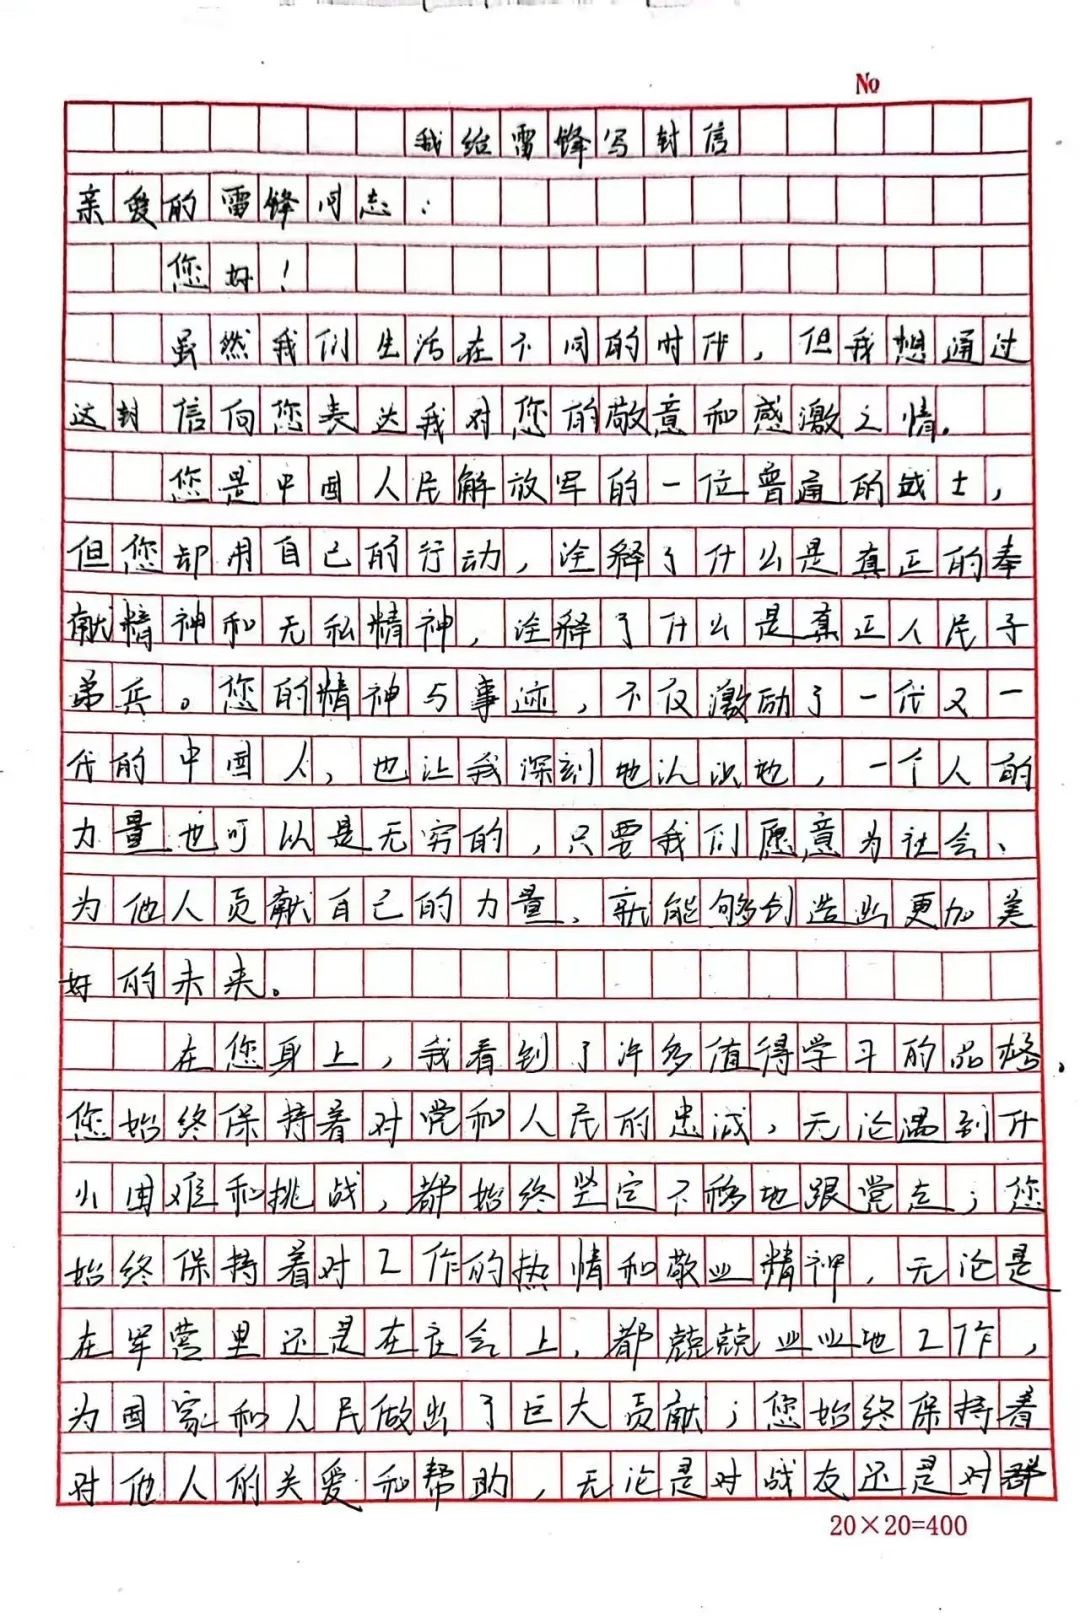 No
我给雷锋写封信
亲爱的雷锋同志：
您好！
虽然我们生活在不同的时代，但我想通过
这封信向您表达我对您的敬意和感激之情.
您是中国人民解放军的一位普通的战士，
但您却用自己的行动，诠释了什么是真正的奉
献精神和无私精神，诠释了什么是真正人民子
弟兵。您的精神与事迹，不仅激励了一代又一
代的中国人，也让我深刻地认识地，一个人的
力量也可以是无穷的，只要我们愿意为社会、
为他人贡献自己的力量，就能够创造出更加美
好的未来。
在您身上，我看到了许多值得学习的品格，
您始终保持着对党和人民的忠诚，无论遇到什
么困难和挑战，都始终坚定不移地跟党走；您
始终保持着对工作的热情和敬业精神，无论是
在军营里还是在社会上，都兢兢业业地工作，
为国家和人民做出了巨大贡献；您始终保持着
对他人的关爱和帮助，无论是对战友还是对群
20×20=400